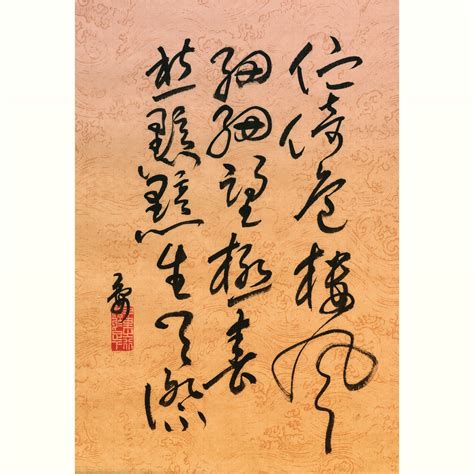 佇倚危樓風
細細望極春
愁黯黯生天際